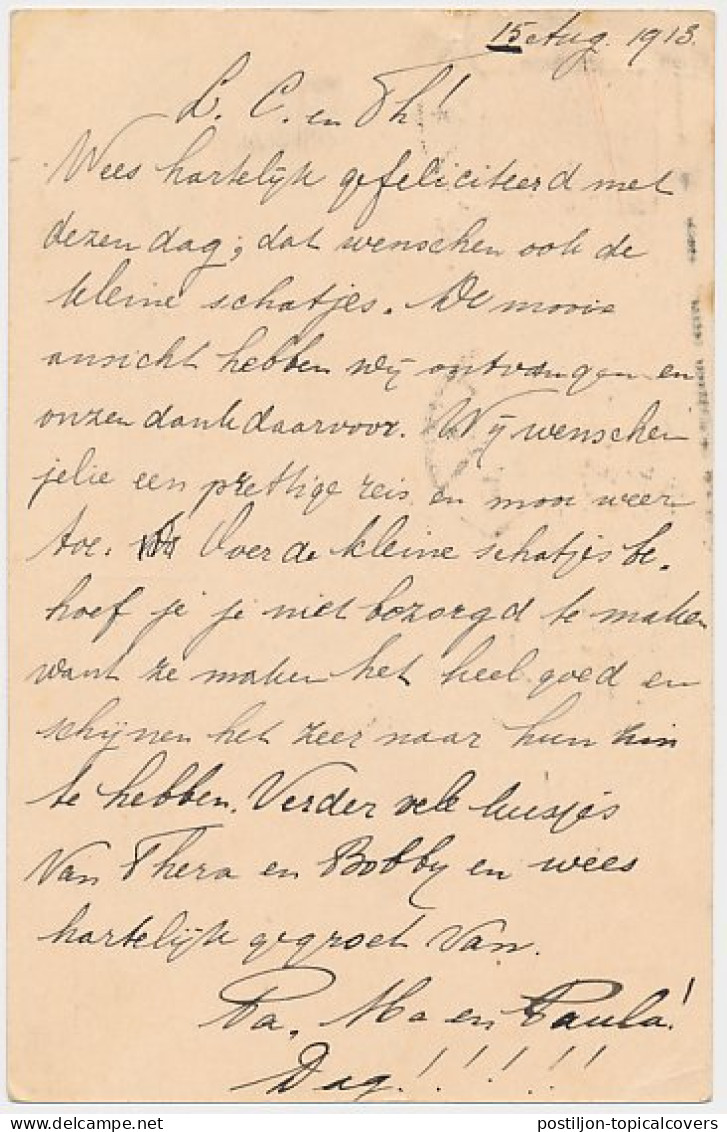 15 Aug. 1913.
L. C. en Th!
Wees hartelijk gefeliciteerd met
dezen dag, dat wenschen ook de
kleine schatjes. De mooie
ansicht hebben wij ontvangen en
onzen dank daarvoor. Wij wenschen
jelie een prettige reis en mooi weer
toe. Over de kleine schatjes be-
hoef je je niet bezorgd te maken
want ze maken het heel goed en
schijnen het zeer naar hun zin
te hebben. Verder vele kusjes
van Thera en Bobby en wees
hartelijk gegroet van.
Pa, Ma en Paula!
Dag!!!!!!
postiljon-topicalcovers